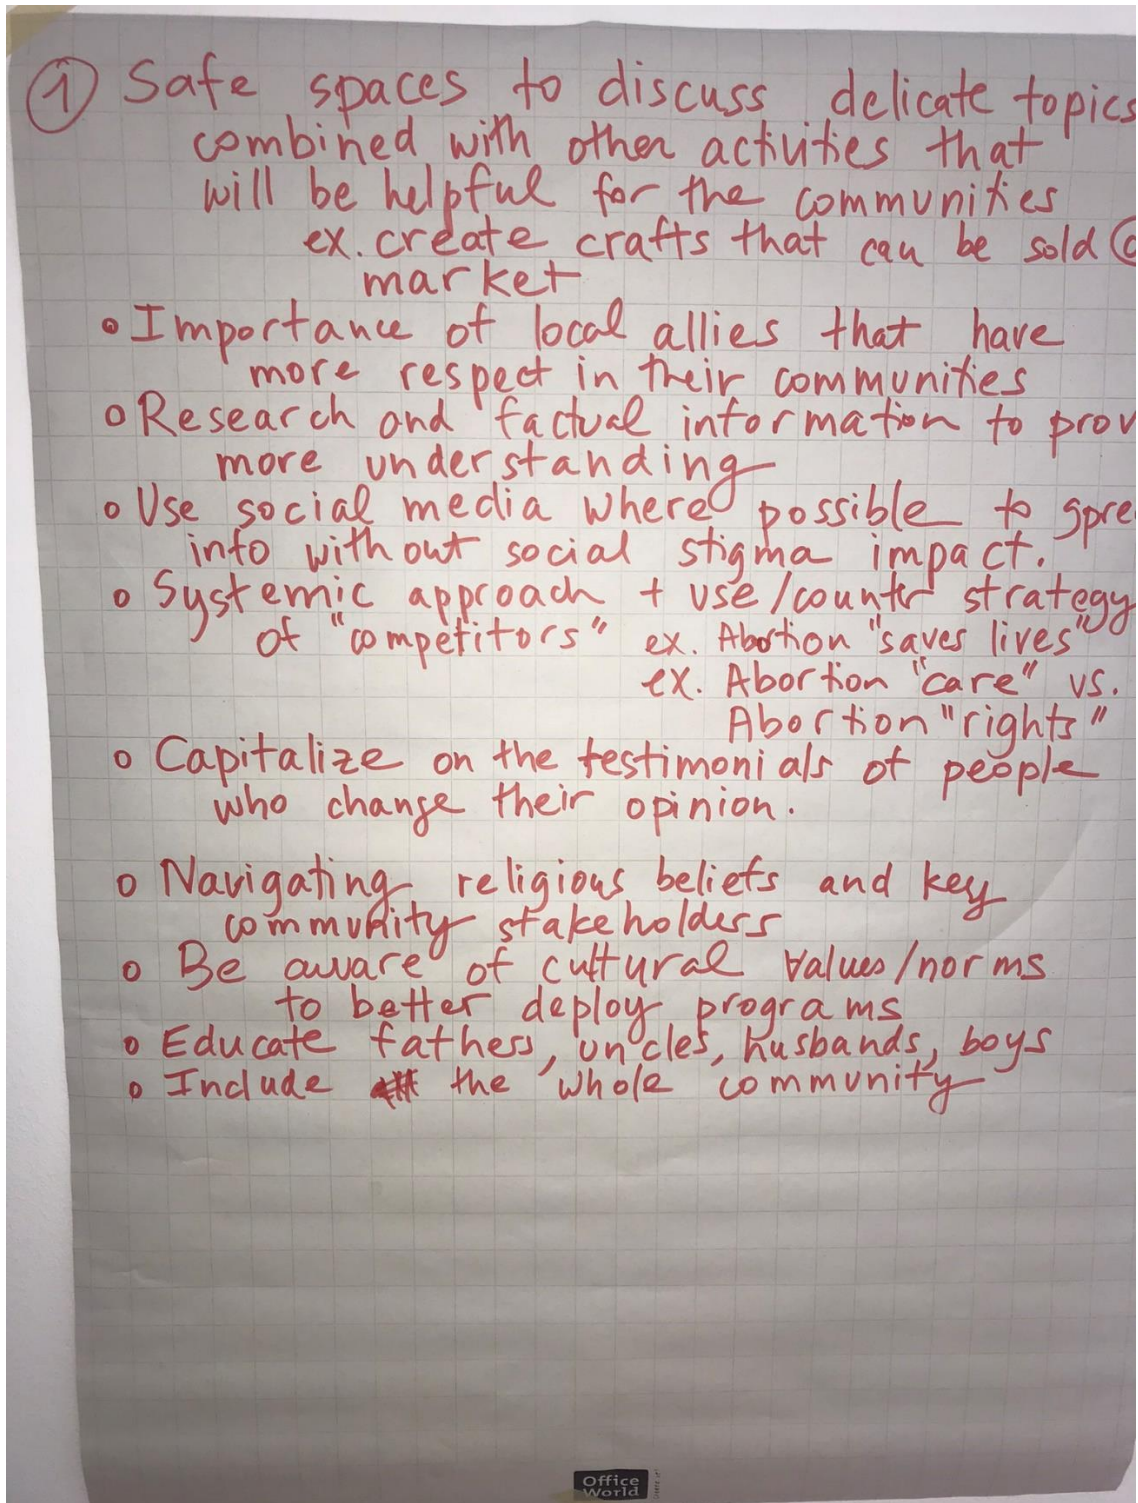 ① Safe spaces to discuss delicate topics
combined with other activities that
will be helpful for the communities
ex. create crafts that can be sold @
market
• Importance of local allies that have
more respect in their communities
• Research and factual information to prov
more understanding
• Use social media where possible to spre
info without social stigma impact.
• Systemic approach + use/counter strategy
of "competitors" ex. Abortion "saves lives"
ex. Abortion "care" vs.
Abortion "rights"
• Capitalize on the testimonials of people
who change their opinion.
• Navigating religious beliefs and key
community stakeholders
• Be aware of cultural values/norms
to better deploy programs
• Educate fathers, uncles, husbands, boys
• Include the whole community
Office
World